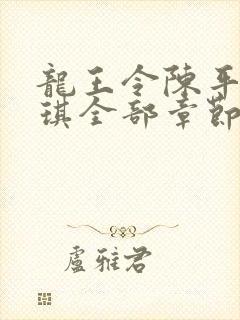 龍王令陳平
琪全部章節
盧雅君